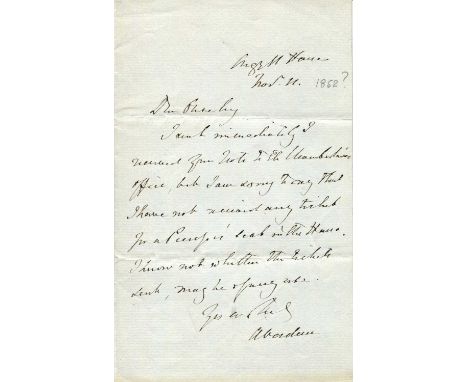 Argyll House
Nov. 11. 1852?
Dear
I sent immediately I
received your Note to the Chamberlain's
Office, but I am sorry to say that
I have not received any ticket
for a Peeress's seat in the House.
I know not whether the tickets
sent, may be of any use.
Aberdeen